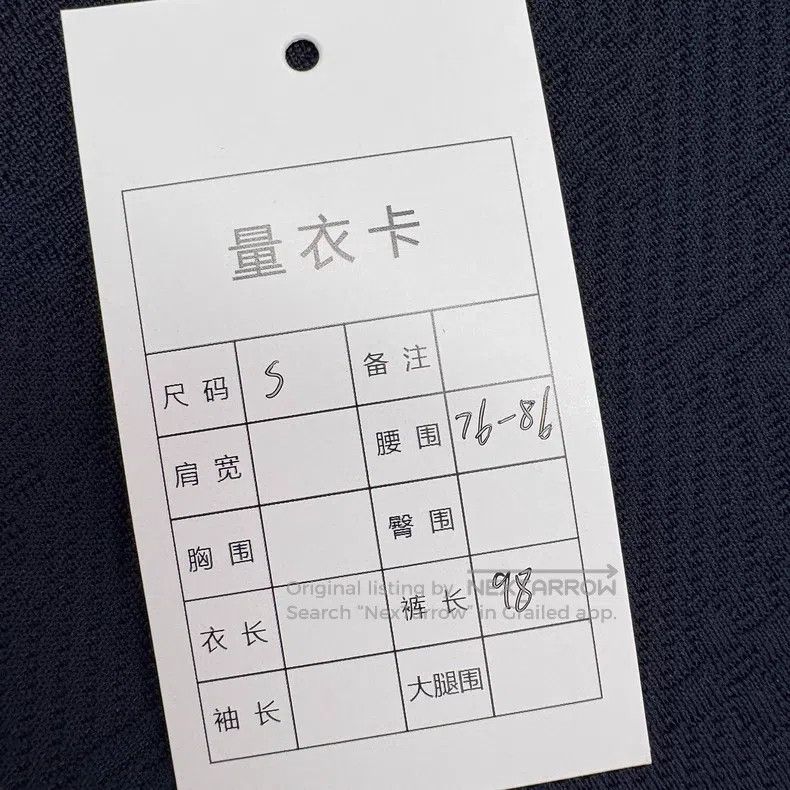 量衣卡
尺码 S 备注
肩宽 腰围 76-86
胸围 臀围
衣长 裤长 98
袖长 大腿围
Original listing by NEXTARROW
Search "NextArrow" in Grailed app.